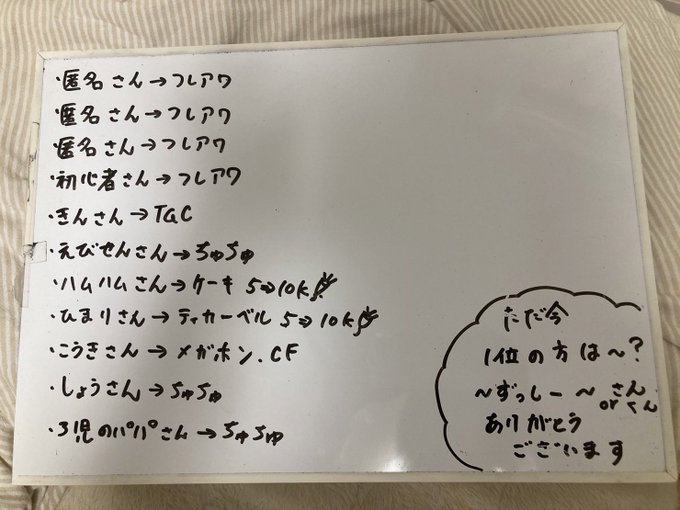 ・匿名さん→フレアワ
・匿名さん→フレアワ
・匿名さん→フレアワ
・初心者さん→フレアワ
・きんさん→TGC
・えびせんさん→ちゅちゅ
・ハムハムさん→ケーキ 5⇒10k
・ひまりさん→ティカーベル 5⇒10k
・こうきさん→メガホン.CF
・しょうさん→ちゅちゅ
・3児のパパさん→ちゅちゅ
ただ今
1位の方は〜?
〜ずっしー〜さん
or くん
ありがとう
ございます